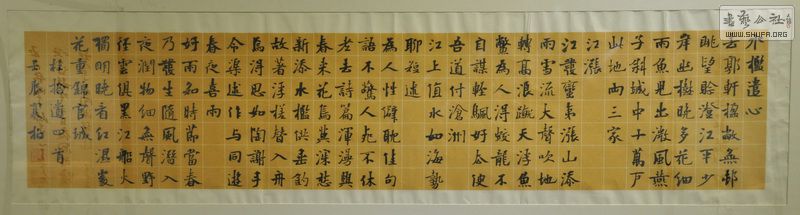 水檻遣心
去郭軒楹敞無邨
眺望賒澄江平少
岸幽樹晚多花細
雨魚兒出微風燕
子斜城中十萬戶
此地兩三家
江漲
江發蠻夷漲山添
雨雪流大聲吹地
轉高浪蹴天浮魚
鱉為人得蛟龍不
自謀輕颿好去便
吾道付滄洲
江上值水如海勢
聊短述
為人性僻耽佳句
語不驚人死不休
老去詩篇渾漫與
春來花鳥莫深愁
新添水檻供垂釣
故著浮槎替入舟
焉得思如陶謝手
令渠述作與同遊
春夜喜雨
好雨知時節當春
乃發生隨風潛入
夜潤物細無聲野
徑雲俱黑江船火
獨明曉看紅濕處
花重錦官城
杜拾遺四首
書藝公社
WWW.SHUFA.ORG